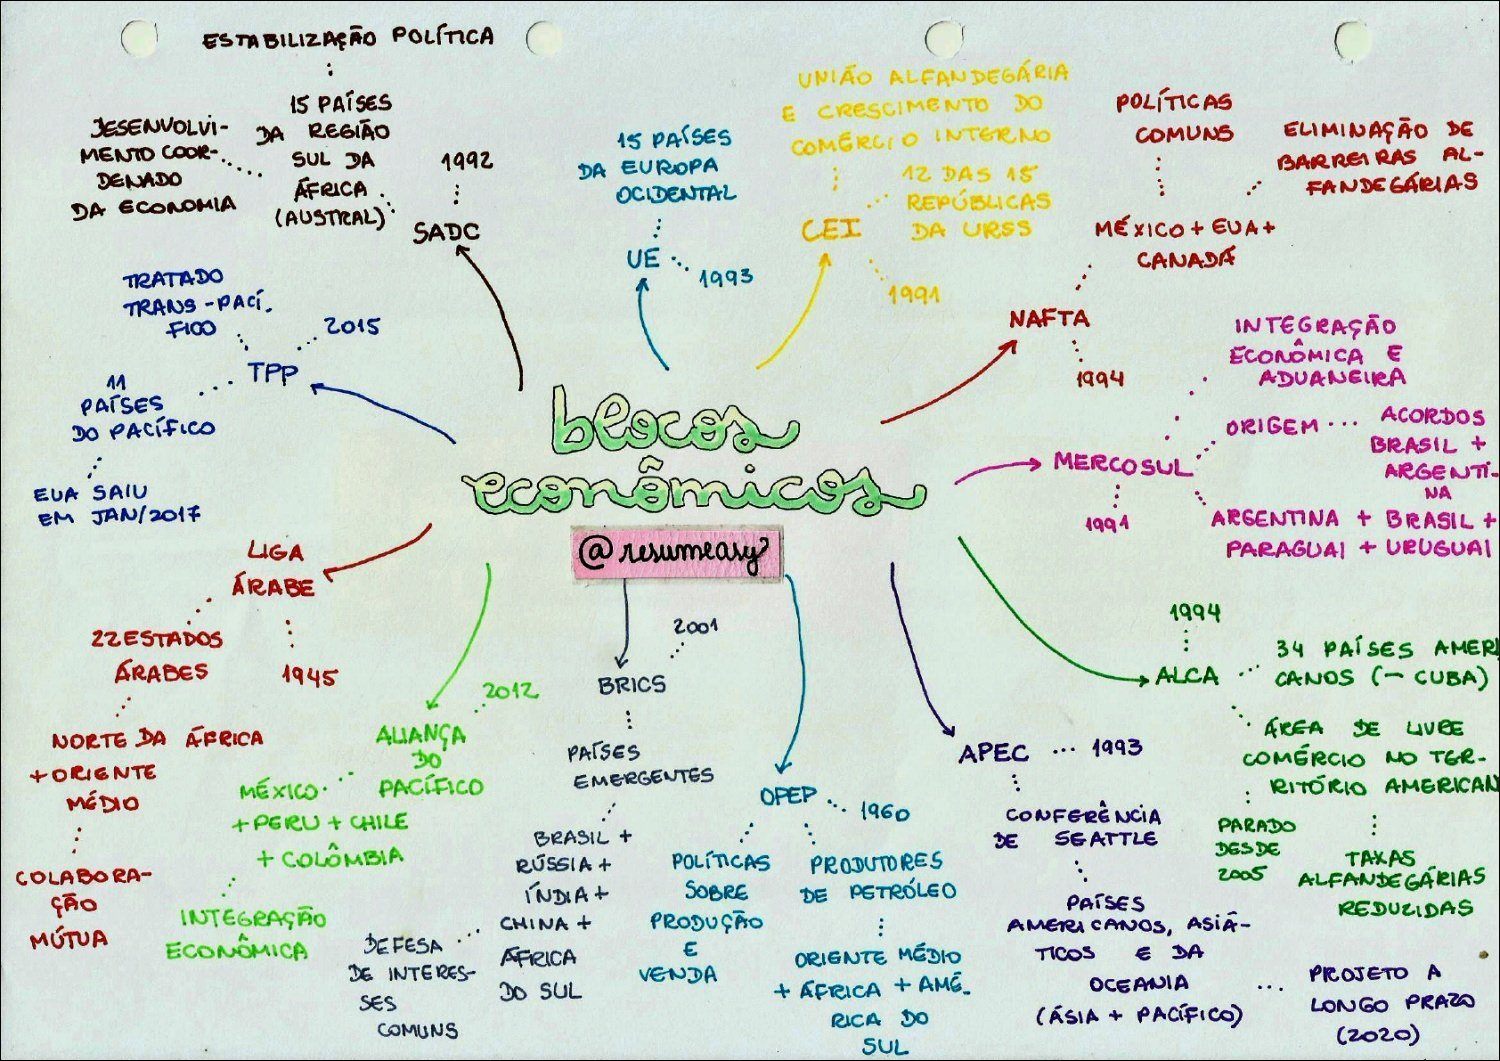 blocos
econômicos
@resumeasy
ESTABILIZAÇÃO POLÍTICA
15 PAÍSES
DA REGIÃO
SUL DA
ÁFRICA
(AUSTRAL)
DESENVOLVI-
MENTO COOR-
DENADO
DA ECONOMIA
1992
SADC
15 PAÍSES
DA EUROPA
OCIDENTAL
UE
1993
UNIÃO ALFANDEGÁRIA
E CRESCIMENTO DO
COMÉRCIO INTERNO
12 DAS 15
REPÚBLICAS
DA URSS
CEI
1991
POLÍTICAS
COMUNS
ELIMINAÇÃO DE
BARREIRAS AL-
FANDEGÁRIAS
MÉXICO + EUA +
CANADÁ
NAFTA
1994
INTEGRAÇÃO
ECONÔMICA E
ADUANEIRA
ORIGEM
ACORDOS
BRASIL +
ARGENTI-
NA
MERCOSUL
1991
ARGENTINA + BRASIL +
PARAGUAI + URUGUAI
1994
ALCA
34 PAÍSES AMERI
CANOS (- CUBA)
ÁREA DE LIVRE
COMÉRCIO NO TER-
RITÓRIO AMERICAN
PARADO
DESDE
2005
TAXAS
ALFANDEGÁRIAS
REDUZIDAS
APEC
1993
CONFERÊNCIA
DE SEATTLE
PAÍSES
AMERICANOS, ASIÁ-
TICOS E DA
OCEANIA
(ÁSIA + PACÍFICO)
PROJETO A
LONGO PRAZO
(2020)
OPEP
1960
POLÍTICAS
SOBRE
PRODUÇÃO
E
VENDA
PRODUTORES
DE PETRÓLEO
ORIENTE MÉDIO
+ ÁFRICA + AMÉ-
RICA DO
SUL
2001
BRICS
PAÍSES
EMERGENTES
BRASIL +
RÚSSIA +
ÍNDIA +
CHINA +
ÁFRICA
DO SUL
DEFESA
DE INTERES-
SES
COMUNS
2012
ALIANÇA
DO
PACÍFICO
MÉXICO
+ PERU + CHILE
+ COLÔMBIA
INTEGRAÇÃO
ECONÔMICA
LIGA
ÁRABE
22 ESTADOS
ÁRABES
1945
NORTE DA ÁFRICA
+ ORIENTE
MÉDIO
COLABORA-
ÇÃO
MÚTUA
TRATADO
TRANS-PACÍ-
FICO
2015
TPP
11
PAÍSES
DO PACÍFICO
EUA SAIU
EM JAN/2017